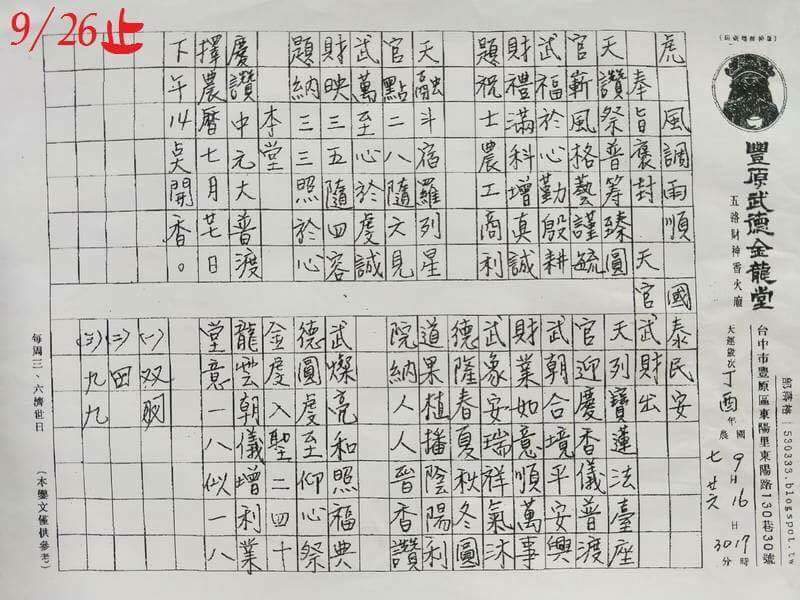 9/26止
(版權翻印必究)
豐原武德金龍堂
五路財神香火廟
台中市豐原區東陽里東陽路130巷30號
530333.blogspot.tw
天運歲次丁酉年 國9月16日17時30分
農七廿六
虎 風調雨順 國泰民安
奉旨褒封 天官武財出
天讚祭普等臻圓
官蘄風格藝謹毓
武福於心勤殷耕
財禮滿科增真誠
題祝士農工商利
天融斗宿羅列星
官點二八隨六見
武萬至心於虔誠
財映三五隨四容
題納三三照於心
本堂
慶讚中元大普渡
擇農曆七月廿七日
下午14点開香。
天列寶蓮法臺座
官迎慶香儀普渡
武朝合境平安興
財業如意順萬事
武象安瑞祥氣沐
德隆春夏秋冬圓
道果植播陰陽利
院納人人晉香讚
武燦亮和照福典
德圓虔至仰心祭
金虔入聖二四十
龍雲朝儀增利業
堂意一八似一八
(一)双
(二)四
(三)九九
每周三、六濟世日
(本鸞文僅供參考)